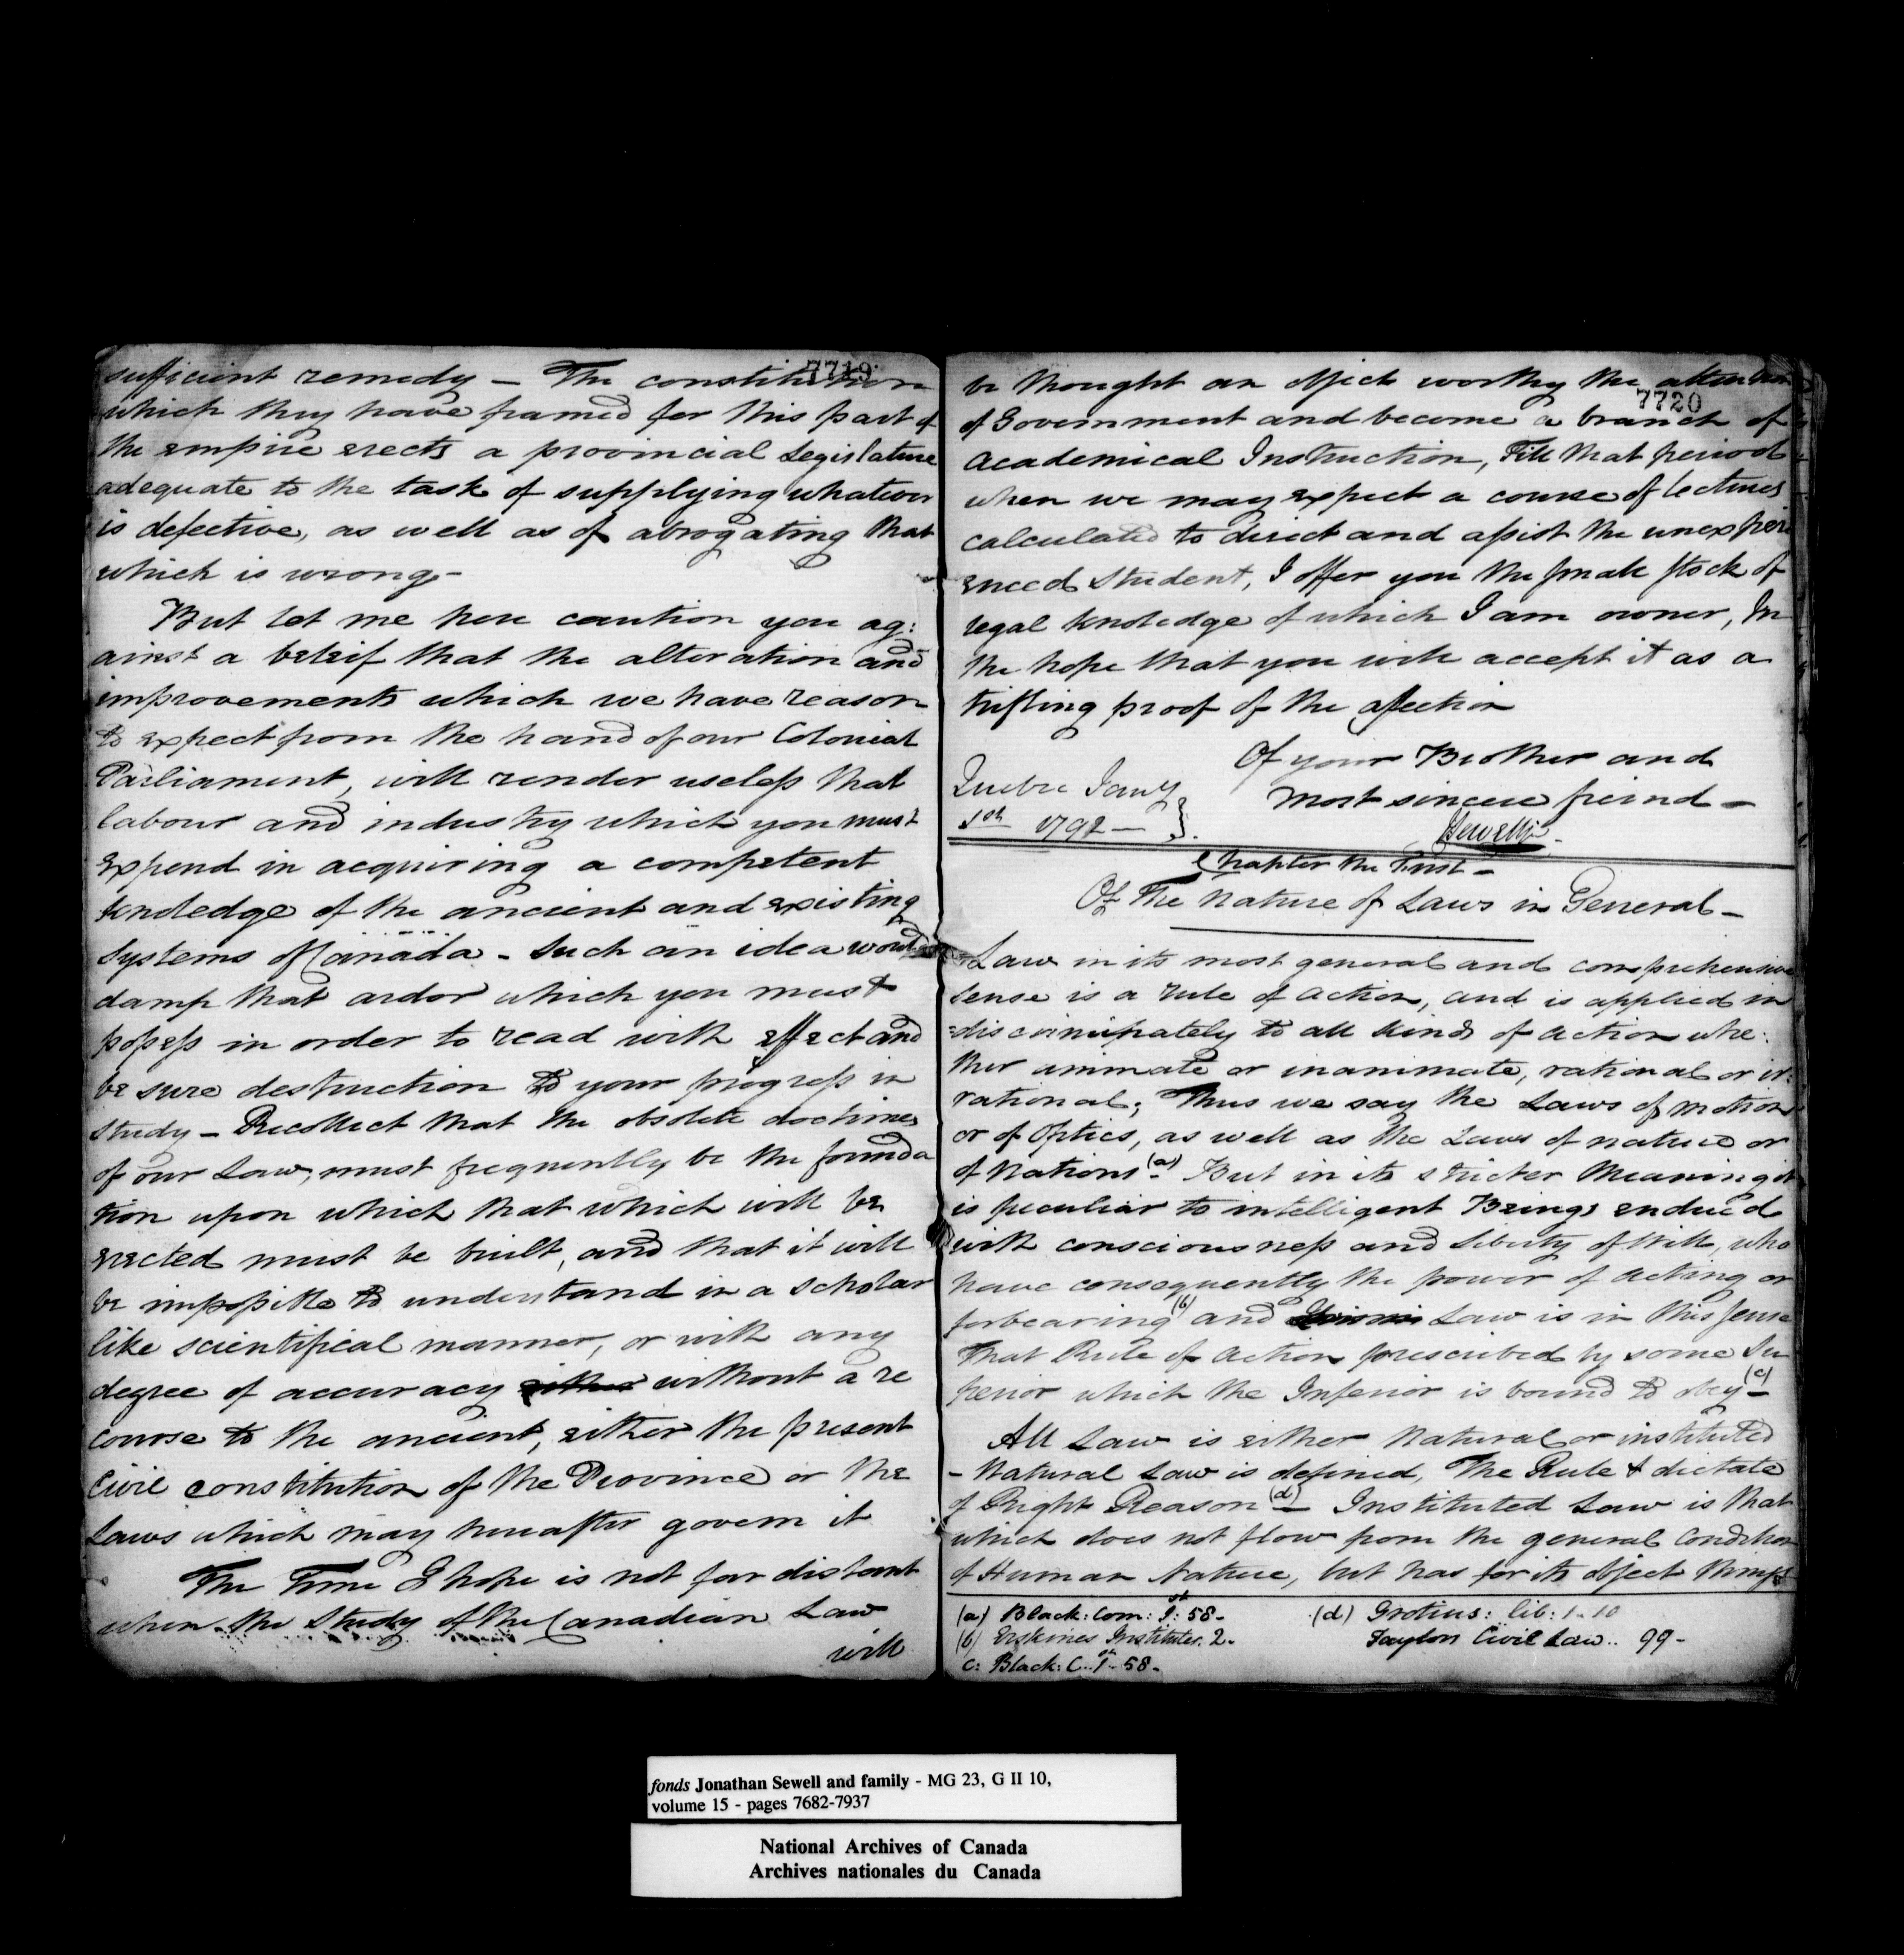 7719
sufficient remedy – The constitution
which they have framed for this part of
the empire erects a provincial Legislature
adequate to the task of supplying whatever
is defective, as well as of abrogating that
which is wrong –
But let me here caution you ag:
ainst a beleif that the alteration and
improvements which we have reason
to expect from the hand of our Colonial
Parliament, will render useless that
labour and industry which you must
expend in acquiring a competent
knoledge of the ancient and existing
systems of Canada – Such an idea would
damp that ardor which you must
possess in order to read with effect and
be sure destruction to your progress in
study – Recollect that the obsolete doctrines
of our Law, must frequently be the founda
tion upon which that which will be
erected must be built, and that it will
be impossible to understand in a scholar
like scientifical manner, or with any
degree of accuracy either without a re
course to the ancient, either the present
Civil constitution of the Province or the
Laws which may hereafter govern it
The Time I hope is not far distant
when the Study of the Canadian Law
will
7720
be thought an object worthy the attention
of Government and become a branch of
Academical Instruction, Till that period
when we may expect a course of lectures
calculated to direct and assist the unexperi
enced Student, I offer you the small stock of
legal knoledge of which I am owner, In
the hope that you will accept it as a
trifling proof of the affection
Of your Brother and
most sincere freind –
Quebec Jany
1792 –
Chapter the First –
Of The Nature of Laws in General –
Law in its most general and comprehensive
sense is a rule of action, and is applied in
=discriminately to all kinds of action whe:
ther animate or inanimate, rational or ir:
rational; Thus we say the Laws of motion
or of Optics, as well as the Laws of nature or
of Nations (a). But in its stricter Meaning it
is peculiar to intelligent Beings endued
with consciousness and Liberty of Will, who
have consequently the power of acting or
forbearing (b) and Law is in this sense
That Rule of Action prescribed by some Su
perior which the Inferior is bound to obey (c) –
All Law is either Natural or instituted
– Natural Law is defined, The Rule & dictate
of Right Reason (d) – Instituted Law is that
which does not flow from the general Condition
of Human Nature, but has for its object things
(a) Black: Com: 1: 58 –
(b) Erskines Institutes. 2 –
c: Black: C.. 1 – 58 –
(d) Grotius: lib: 1 – 10
Taylors Civil Law.. 99 –
fonds Jonathan Sewell and family - MG 23, G II 10,
volume 15 - pages 7682-7937
National Archives of Canada
Archives nationales du Canada